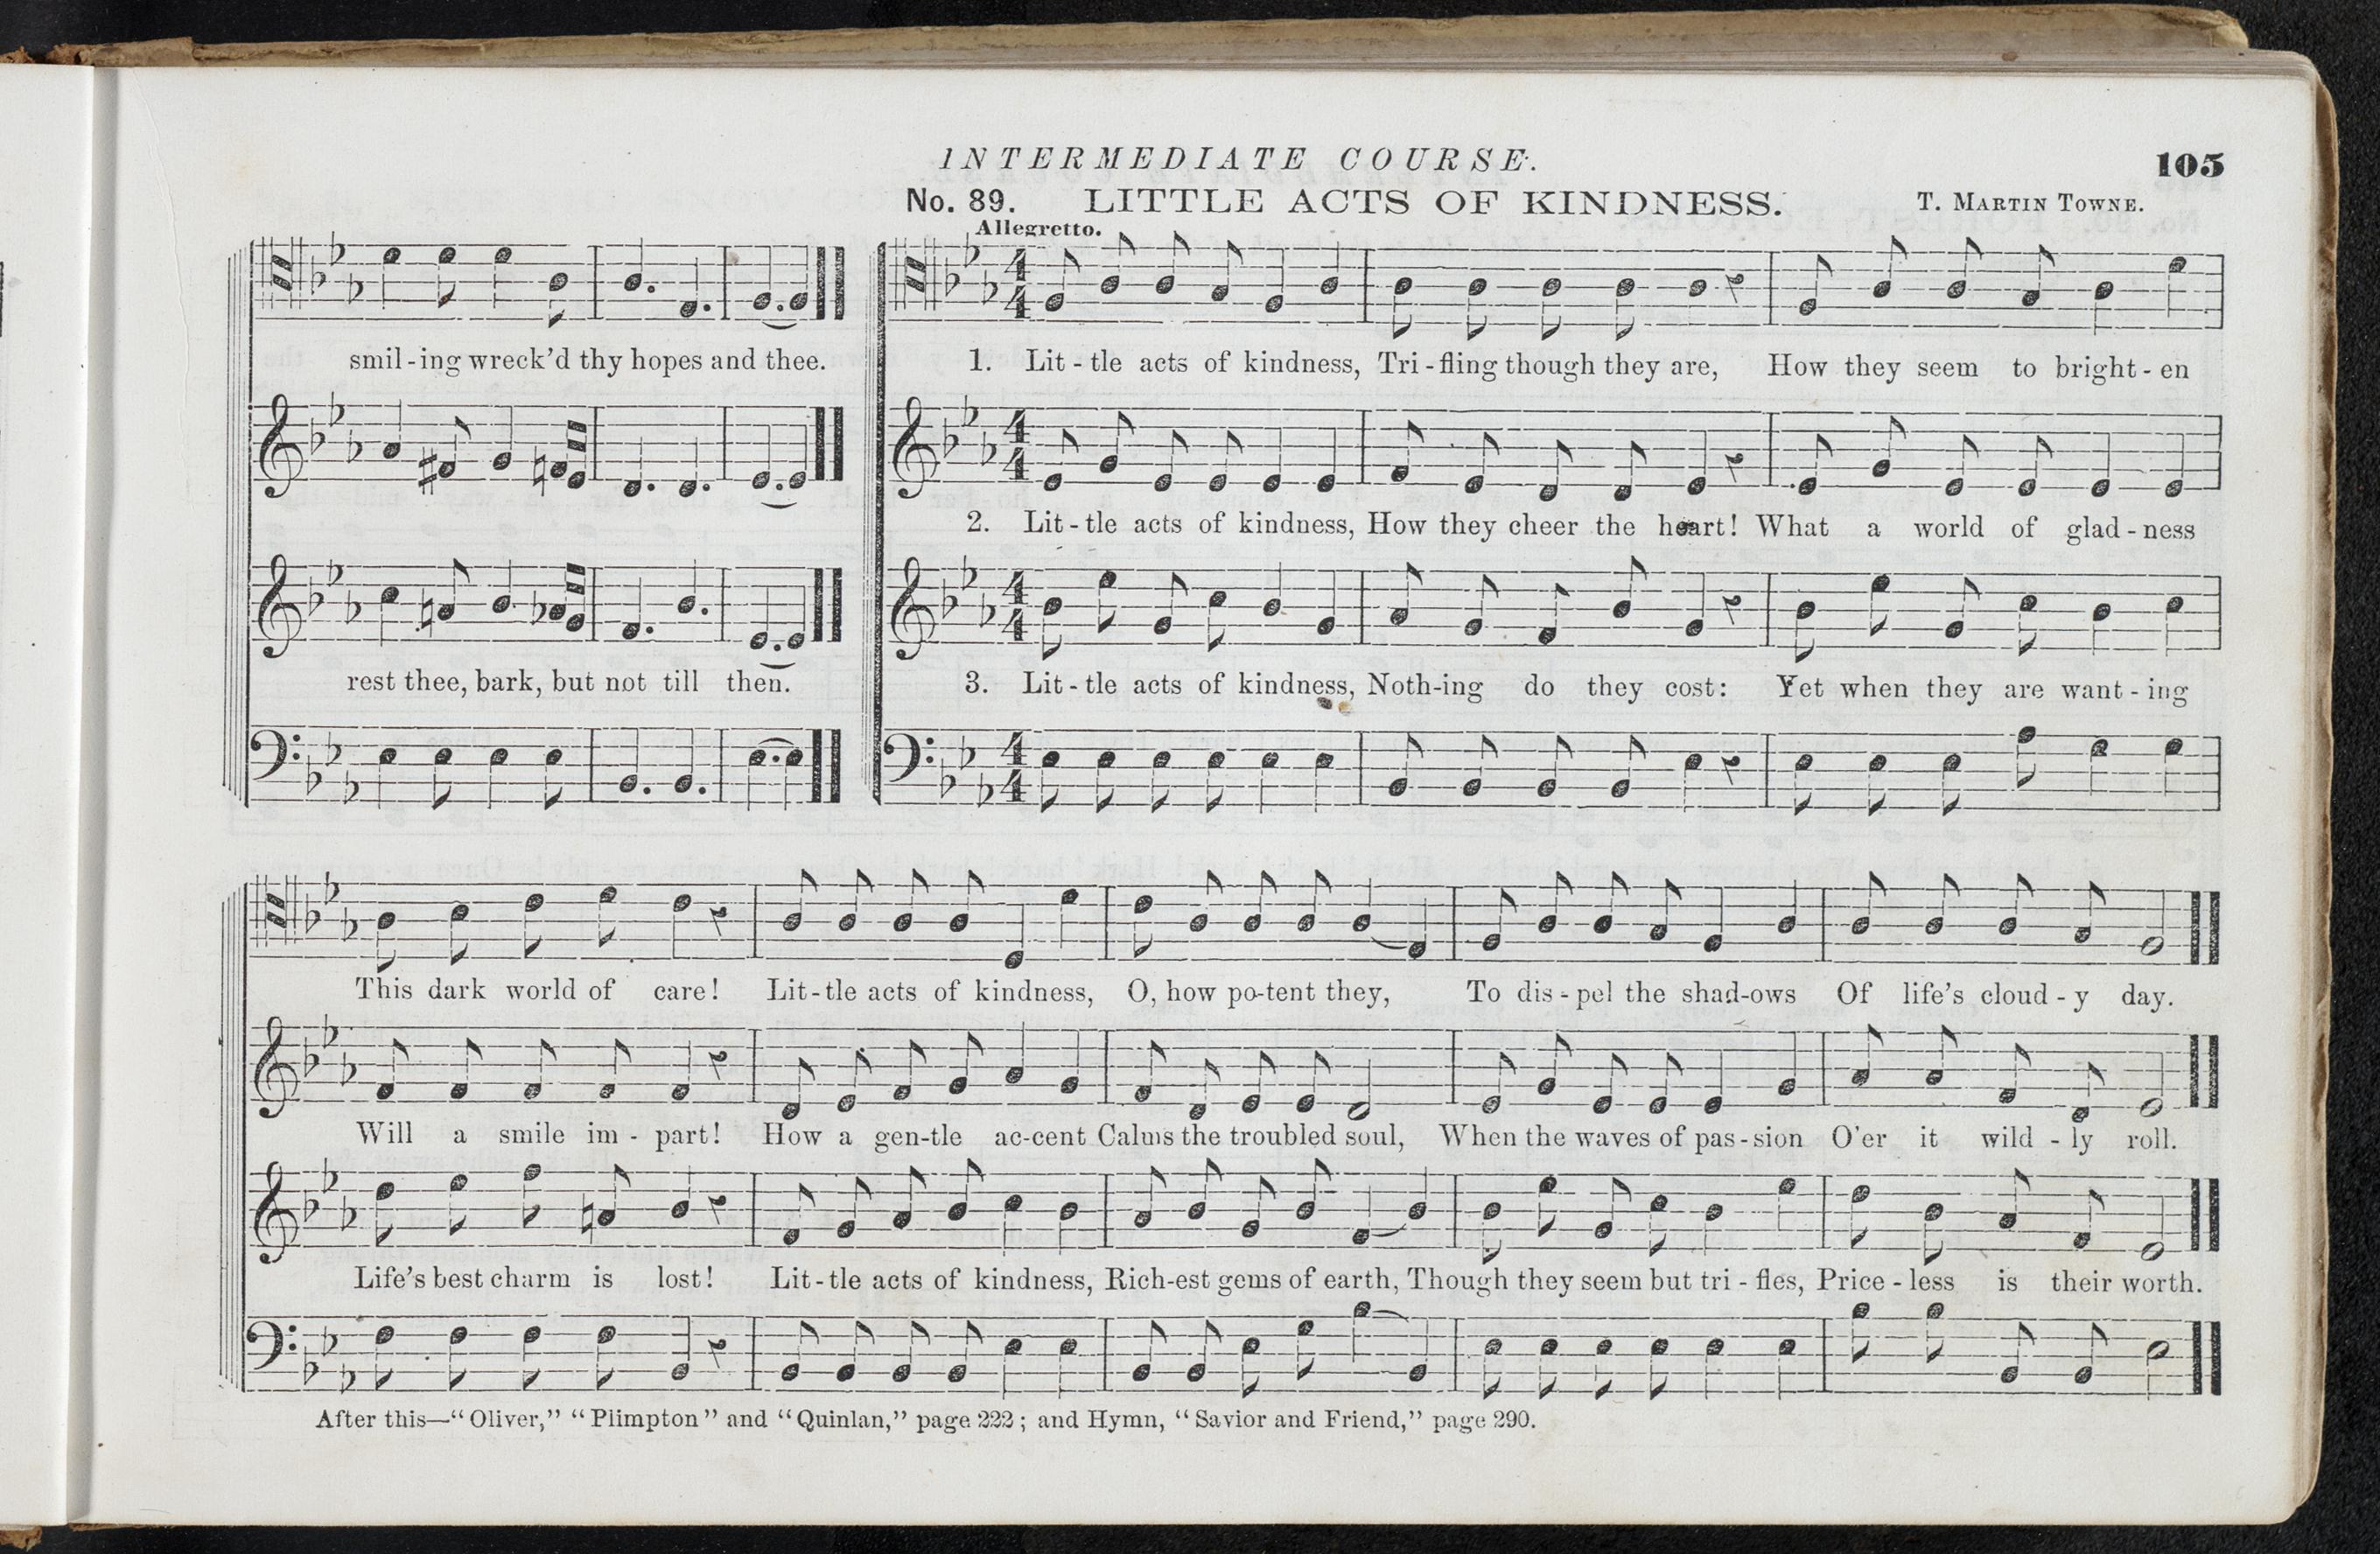 INTERMEDIATE COURSE.
105
No. 89. LITTLE ACTS OF KINDNESS. T. MARTIN TOWNE.
Allegretto.
smil-ing wreck'd thy hopes and thee.
rest thee, bark, but not till then.
4 4
1. Lit-tle acts of kindness, Tri-fling though they are, How they seem to bright-en
4 4
2. Lit-tle acts of kindness, How they cheer the heart! What a world of glad-ness
4 4
3. Lit-tle acts of kindness, Noth-ing do they cost: Yet when they are want-ing
4 4
This dark world of care! Lit-tle acts of kindness, O, how po-tent they, To dis-pel the shad-ows Of life's cloud-y day.
Will a smile im-part! How a gen-tle ac-cent Calms the troubled soul, When the waves of pas-sion O'er it wild-ly roll.
Life's best charm is lost! Lit-tle acts of kindness, Rich-est gems of earth, Though they seem but tri-fles, Price-less is their worth.
After this—“Oliver,” “Plimpton” and “Quinlan,” page 222; and Hymn, “Savior and Friend,” page 290.